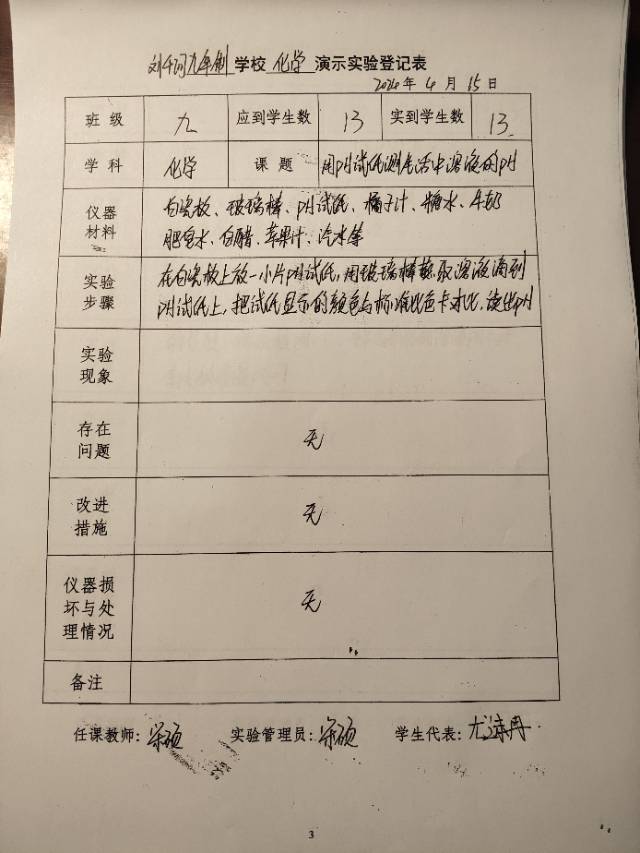 刘千河九年制学校 化学 演示实验登记表
2024年4月15日
班级 九 应到学生数 13 实到学生数 13
学科 化学 课题 用pH试纸测生活中溶液的pH
仪器材料 白瓷板、玻璃棒、pH试纸、橘子汁、糖水、牛奶
肥皂水、白醋、苹果汁、汽水等
实验步骤 在白瓷板上放一小片pH试纸,用玻璃棒蘸取溶液滴到
pH试纸上,把试纸显示的颜色与标准比色卡对比,读出pH
实验现象
存在问题 无
改进措施 无
仪器损坏与处理情况 无
备注
任课教师: 实验管理员: 学生代表:
3